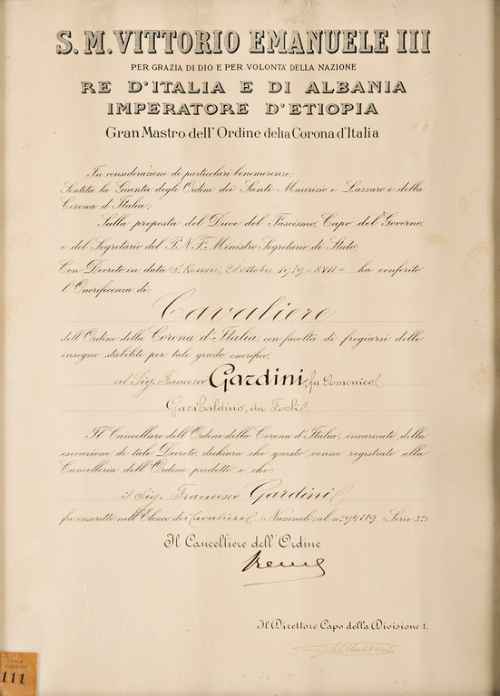 S. M. VITTORIO EMANUELE III
PER GRAZIA DI DIO E PER VOLONTÀ DELLA NAZIONE
RE D'ITALIA E DI ALBANIA
IMPERATORE D'ETIOPIA
Gran Mastro dell'Ordine della Corona d'Italia
In considerazione di particolari benemerenze;
Sentita la Giunta degli Ordini dei Santi Maurizio e Lazzaro e della
Corona d'Italia;
Sulla proposta del Duce del Fascismo, Capo del Governo,
e del Segretario del P. N. F. Ministro Segretario di Stato;
Con Decreto in data 28 ottobre 1939 - XVII - ha conferito
l'Onorificenza di
Cavaliere
dell'Ordine della Corona d'Italia, con facoltà di fregiarsi delle
insegne stabilite per tale grado onorifico,
al Sig. Francesco Gardini, fu Domenico
Garibaldino, da Forlì
Il Cancelliere dell'Ordine della Corona d'Italia, incaricato della
esecuzione di tale Decreto, dichiara che questo venne registrato alla
Cancelleria dell'Ordine predetto e che
il Sig. Francesco Gardini
fu inscritto nell'Elenco dei Cavalieri Nazionali al n. Serie
Il Cancelliere dell'Ordine
Il Direttore Capo della Divisione 1.
111